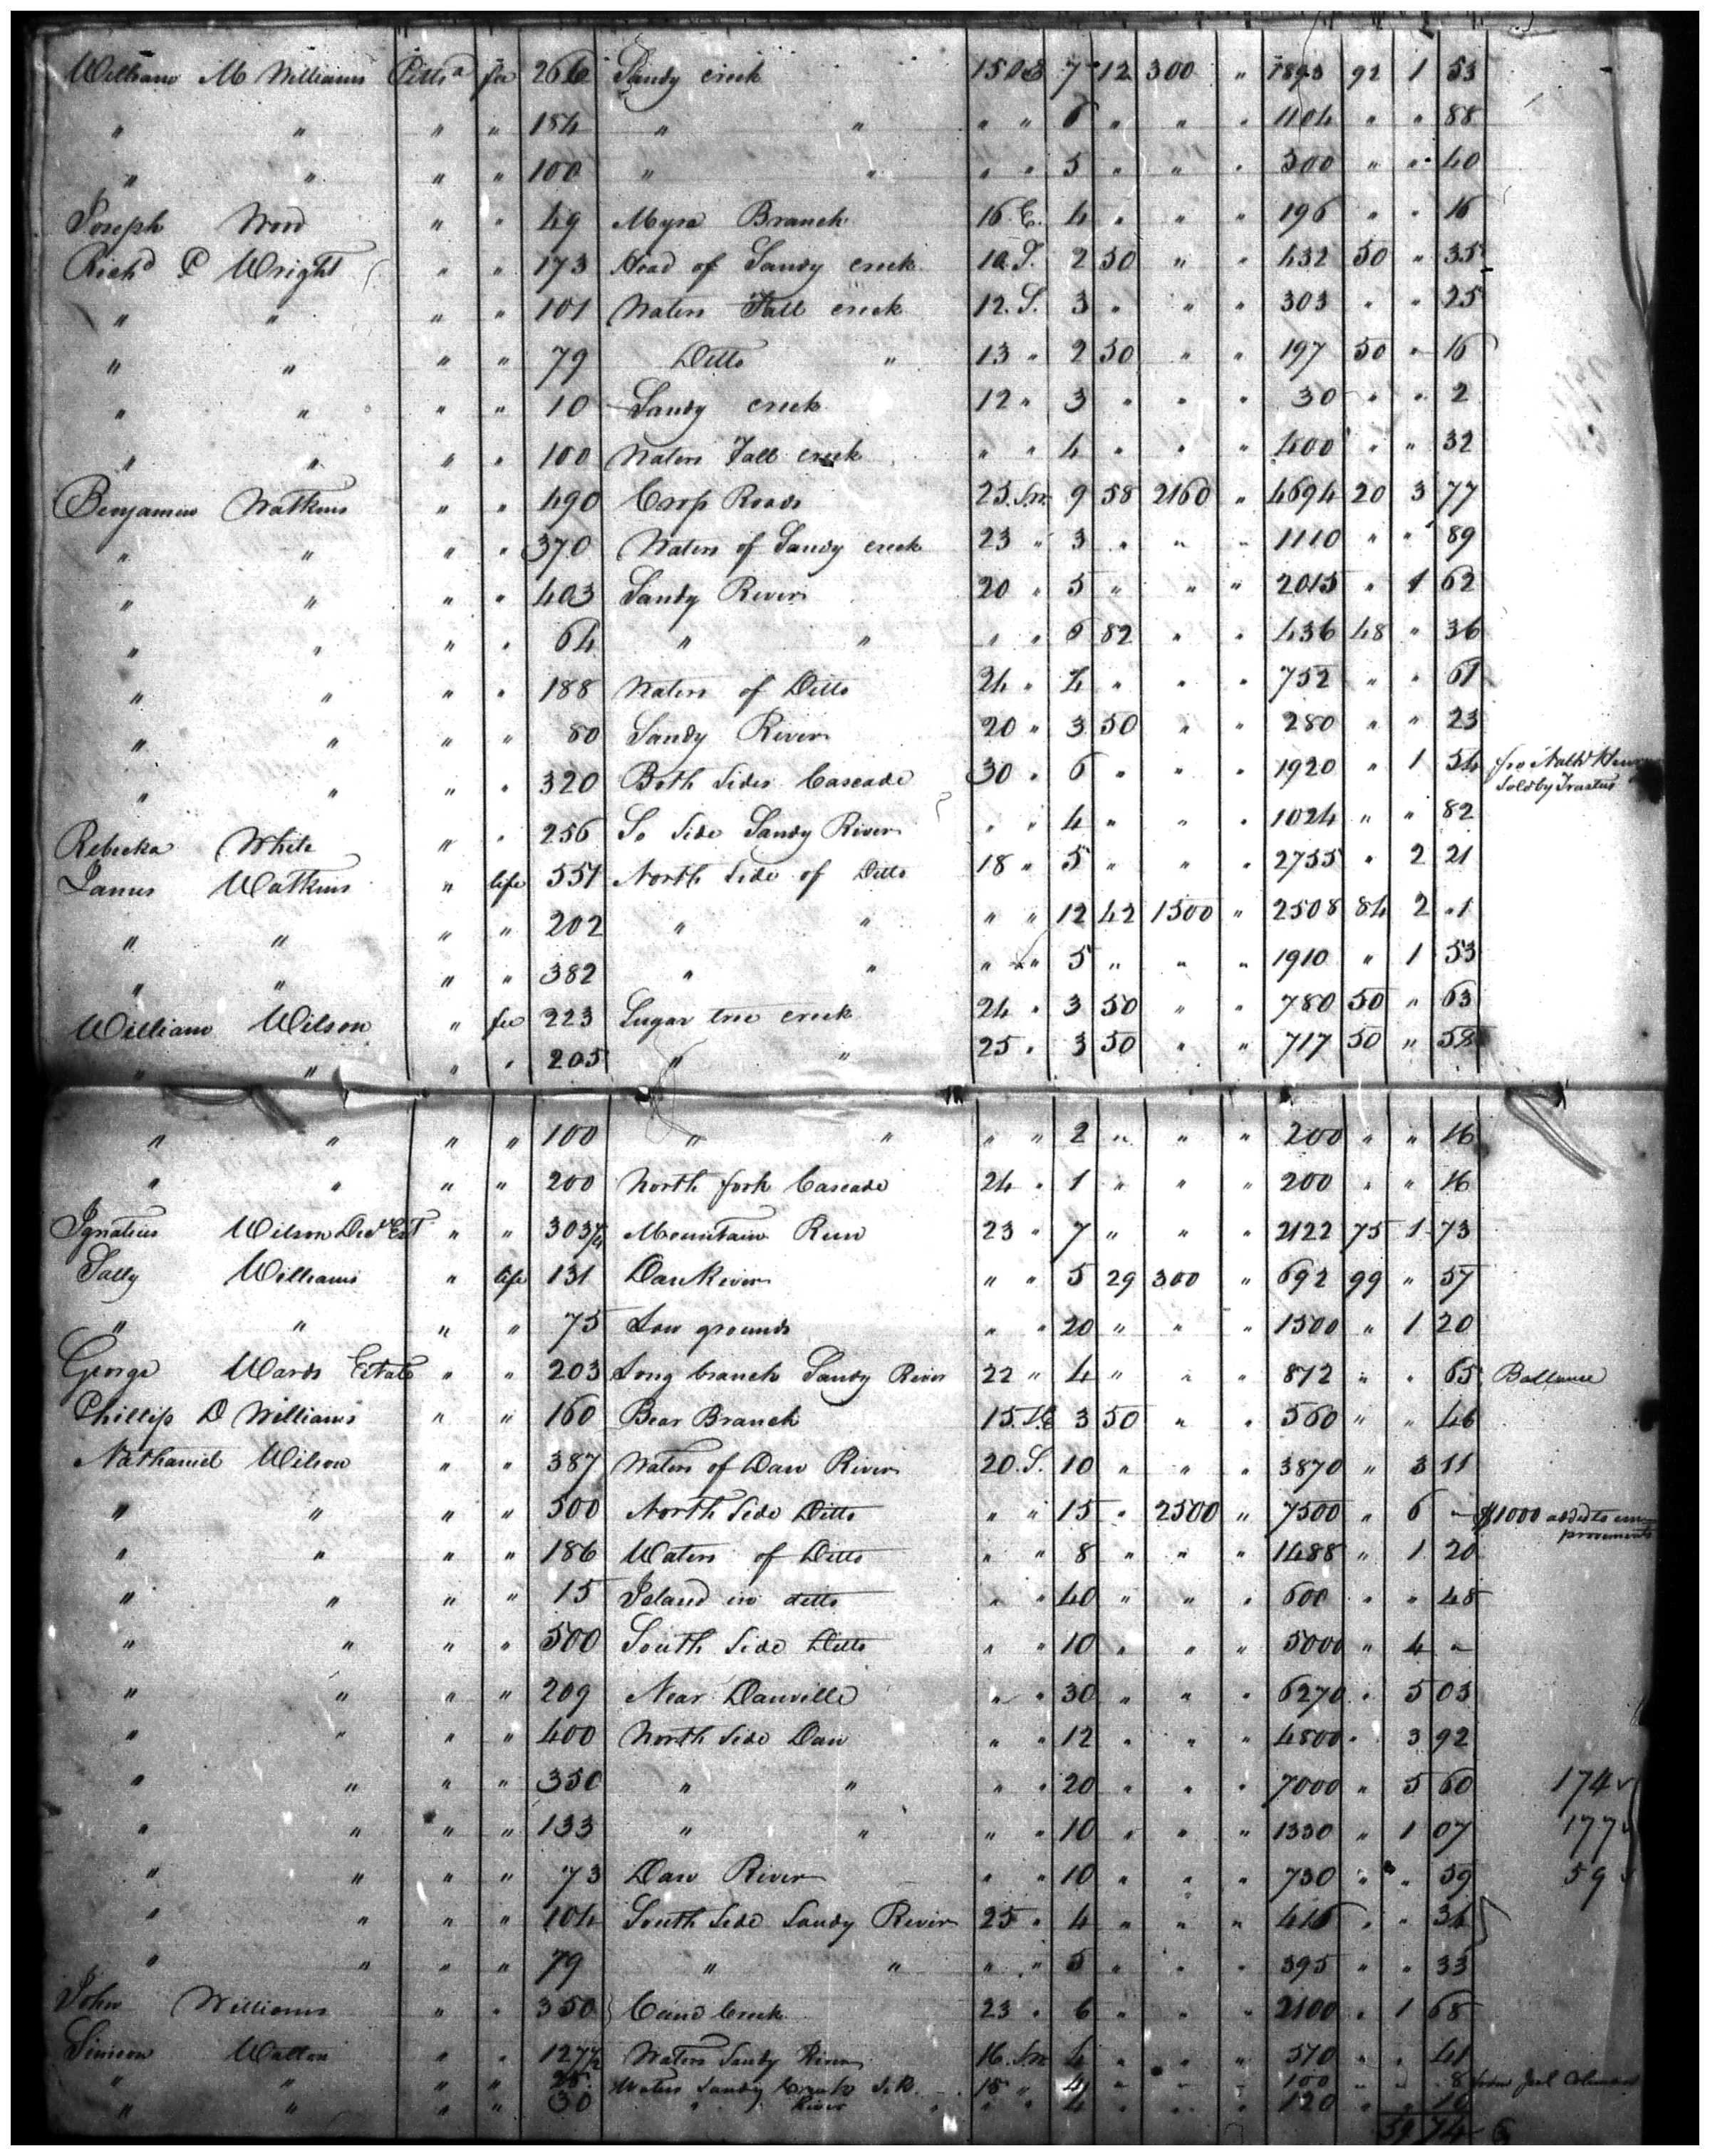 William M Williams Pittsa fee 266 Sandy creek 150 S 7 12 300 " 1893 92 1 53
" " " " 184 " " " " 6 " " " 1104 " " 88
" " " " 100 " " " " 5 " " " 500 " " 40
Joseph Word " " 49 Myra Branch 16 E. 4 " " " 196 " " 16
Richd P Wright " " 173 Head of Sandy creek 10 S. 2 50 " " 432 50 " 35
" " " " 101 Waters Fall creek 12. S. 3 " " " 303 " " 25
" " " " 79 Ditto " 13 " 2 50 " " 197 50 " 16
" " " " 10 Sandy creek 12 " 3 " " " 30 " " 2
" " " " 100 Waters Fall creek " " 4 " " " 400 " " 32
Benjamin Watkins " " 490 Cross Roads 23. Sw 9 58 2160 " 4694 20 3 77
" " " " 370 Waters of Sandy creek 23 " 3 " " " 1110 " " 89
" " " " 403 Sandy River 20 " 5 " " " 2015 " 1 62
" " " " 64 " " " " 6 82 " " 436 48 " 36
" " " " 188 Waters of Ditto 24 " 4 " " " 752 " " 61
" " " " 80 Sandy River 20 " 3 50 " " 280 " " 23
" " " " 320 Both Sides Cascade 30 " 6 " " " 1920 " 1 54 fro Nathl
Sold by Trustee
Rebecka White " " 256 So Side Sandy River " " 4 " " " 1024 " " 82
James Watkins " life 551 North Side of Ditto 18 " 5 " " " 2755 " 2 21
" " " " 202 " " " " 12 42 1500 " 2508 84 2 "1
" " " " 382 " " " " 5 " " " 1910 " 1 53
William Wilson " fee 223 Sugar tree creek 24 " 3 50 " " 780 50 " 63
" " " " 205 " " 25 " 3 50 " " 717 50 " 58
" " " " 100 " " " " 2 " " " 200 " " 16
" " " " 200 North fork Cascade 24 " 1 " " " 200 " " 16
Ignatius Wilson Decd Est " " 303 1/4 Mountain Run 23 " 7 " " " 2122 75 1 73
Sally Williams " life 131 Dan River " " 5 29 300 " 692 99 " 57
" " " " 75 Low grounds " " 20 " " " 1500 " 1 20
George Wards Estate " " 203 Long branch Sandy River 22 " 4 " " " 812 " " 65 Ballance
Phillip D Williams " " 160 Bear Branch 15. S.E 3 50 " " 560 " " 46
Nathaniel Wilson " " 387 Waters of Dan River 20. S. 10 " " " 3870 " 3 11
" " " " 500 North Side Ditto " " 15 " 2500 " 7500 " 6 " $1000 added to im
provements
" " " " 186 Waters of Ditto " " 8 " " " 1488 " 1 20
" " " " 15 Island in ditto " " 40 " " " 600 " " 48
" " " " 500 South Side Ditto " " 10 " " " 5000 " 4 "
" " " " 209 Near Danville " " 30 " " " 6270 " 5 03
" " " " 400 North Side Dan " " 12 " " " 4800 " 3 92
" " " " 350 " " " " 20 " " " 7000 " 5 60 174
" " " " 133 " " " " 10 " " " 1330 " 1 07 177
" " " " 73 Dan River " " 10 " " " 730 " " 59 59
" " " " 104 South Side Sandy River 25 " 4 " " " 416 " " 34
" " " " 79 " " " " 5 " " " 395 " " 33
John Williams " " 350 Cane Creek 23 " 6 " " " 2100 " 1 68
Simeon Walton " " 127 1/2 Waters Sandy River 16. Sw 4 " " " 510 " " 41
" " " " 25 Waters Sandy Creek S.R. 15 " 4 " " " 100 " " 8 from Joel Coleman
" " " " 30 " River " " " 4 " " " 120 " " 10
59 74